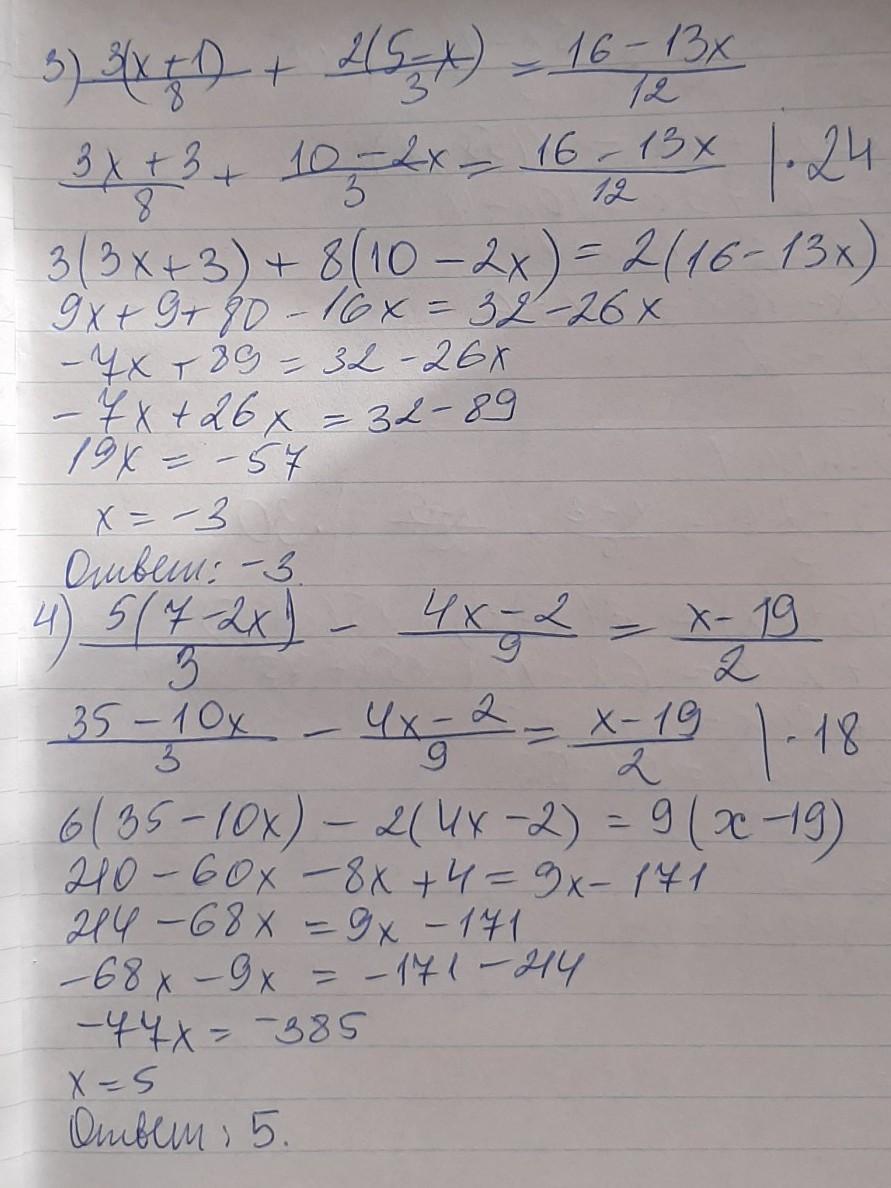 3) 3(x+1)/8 + 2(5-x)/3 = 16-13x/12
3x+3/8 + 10-2x/3 = 16-13x/12 |·24
3(3x+3)+8(10-2x)=2(16-13x)
9x+9+80-16x=32-26x
-7x+89=32-26x
-7x+26x=32-89
19x=-57
x=-3
Ответ: -3.
4) 5(7-2x)/3 - 4x-2/9 = x-19/2
35-10x/3 - 4x-2/9 = x-19/2 |·18
6(35-10x)-2(4x-2)=9(x-19)
210-60x-8x+4=9x-171
214-68x=9x-171
-68x-9x=-171-214
-77x=-385
x=5
Ответ: 5.